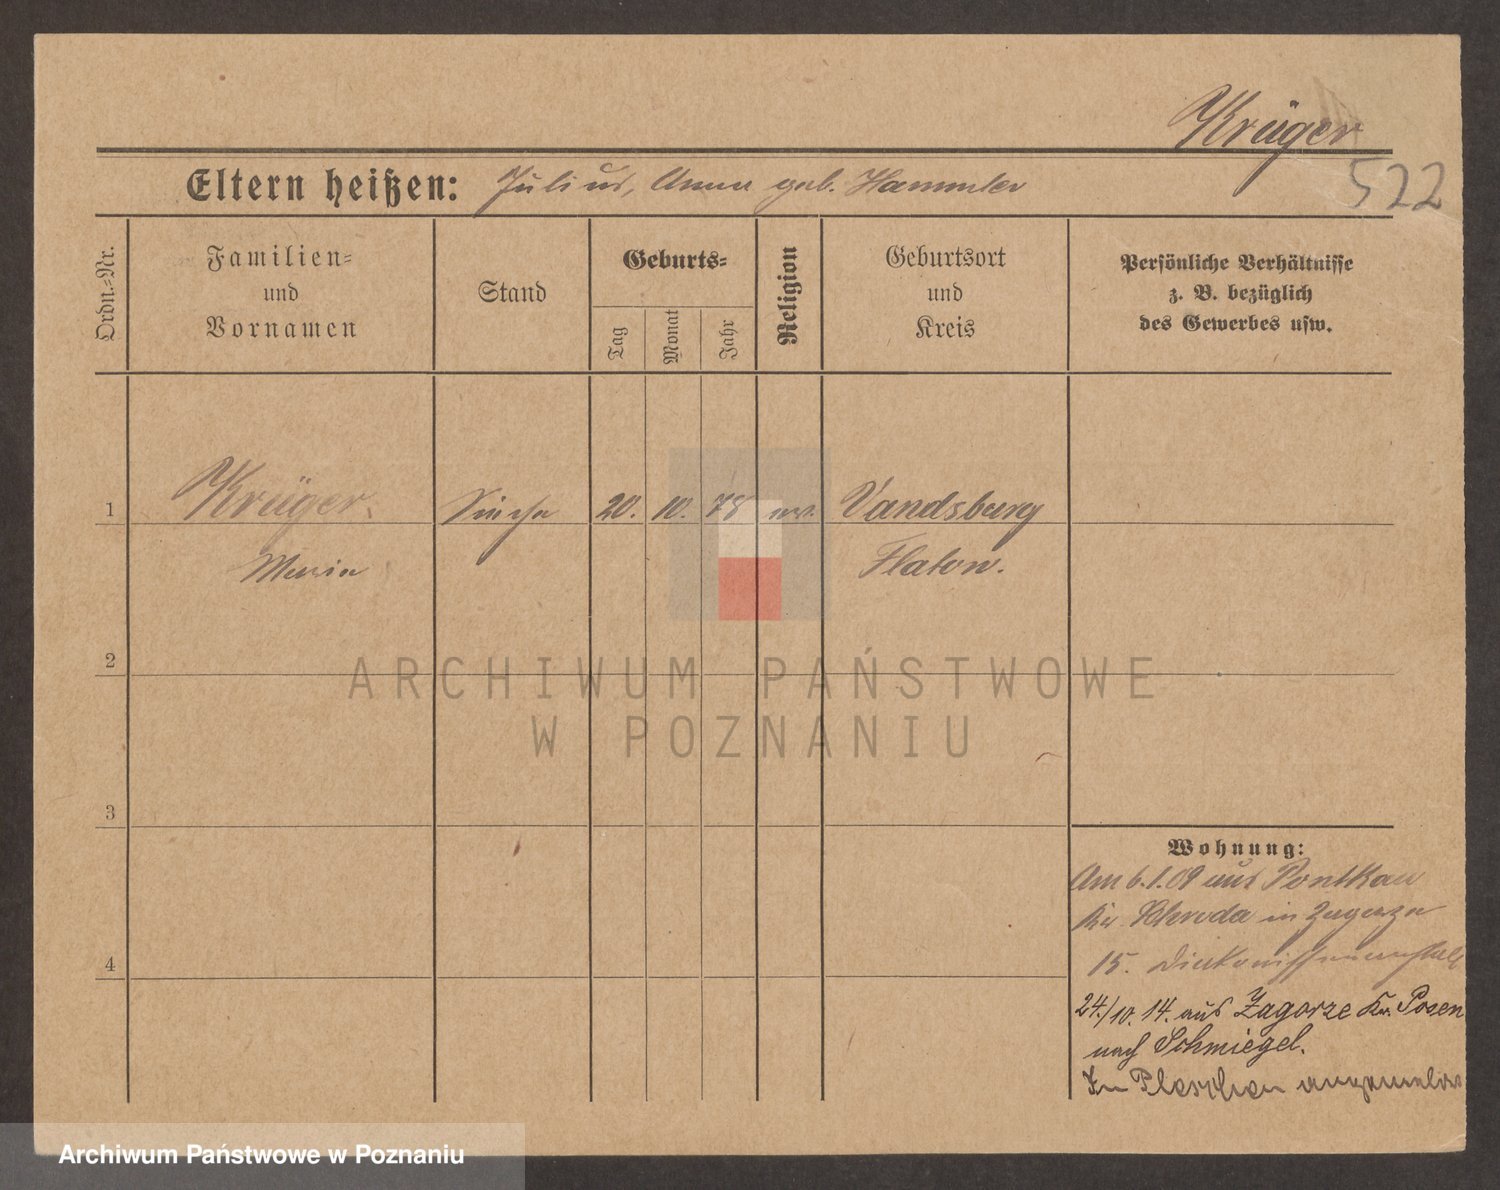 Krüger
522
Eltern heißen: Julius, Anna geb. Hammler
Ordn.-Nr.
Familien-
und
Vornamen
Stand
Geburts-
Tag
Monat
Jahr
Religion
Geburtsort
und
Kreis
Persönliche Verhältnisse
z. B. bezüglich
des Gewerbes usw.
1
Krüger. 20. 10. 78 Vandsburg
Maria Flatow.
2
3
4
Wohnung:
Am 6.1.09 aus
Kr. Schroda in Zagorze
15. Diakonissenanstalt
24./10. 14. aus Zagorze Kr. Posen
nach Schmiegel.
In Pleschen angemeldet
ARCHIWUM PAŃSTWOWE
W POZNANIU
Archiwum Państwowe w Poznaniu